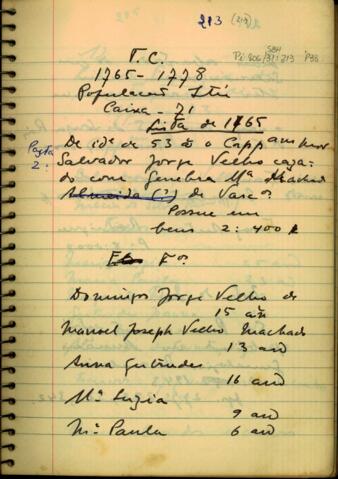 213 (213)
SBH
Pi 806/311 213 P38
T. C.
1765-1778
População Itú
Caixa - 71
Lista de 1765
Pasta 2:
De idᵉ de 53 aˢ o Cappᵃᵐ mor
Salvador Jorge Velho caza-
do com Genebra Mᵃ Machado
Almeida (?) de Vascº
Possue em
bens 2:400$
Fºˢ
Domingos Jorge Velho de
15 anˢ
Manoel Joseph Velho Machado
13 anˢ
Anna Gertrudes
16 anˢ
Mᵃ Luzia
9 anˢ
Mᵃ Paula 6 anˢ